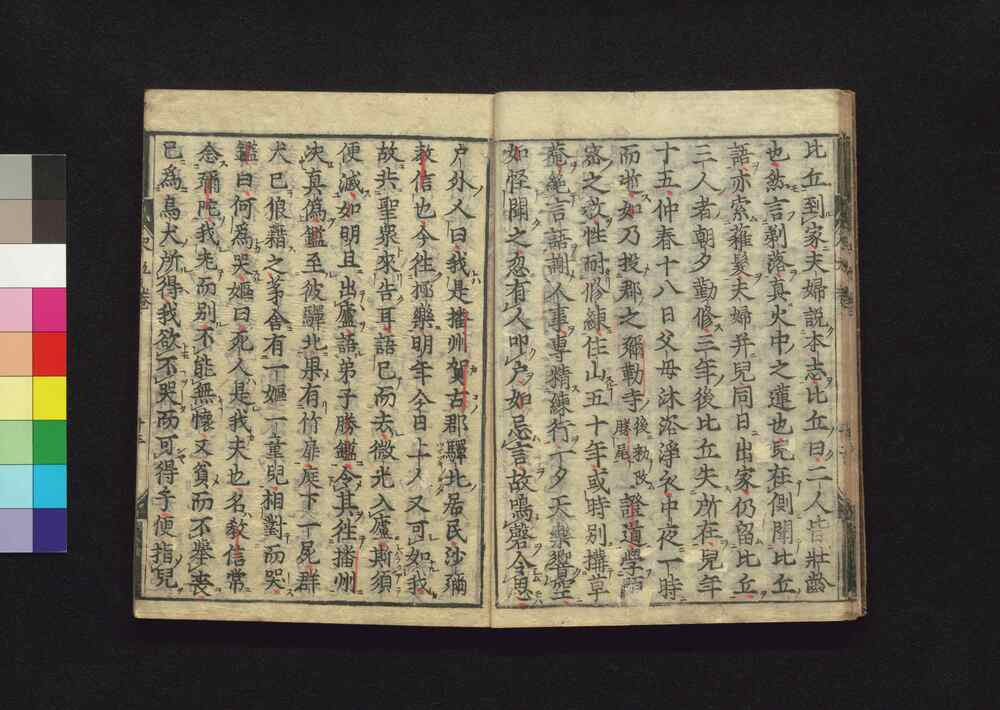 比丘到家夫婦説本志比丘曰二人皆壯齡
也然言剃落真火中之蓮也兒在側聞比丘
語亦索薙髮夫婦并兒同日出家仍留比丘
三人者朝夕勤修三年後比丘失所在兒年
十五仲春十八日父母沐浴淨衣中夜一時
而逝如乃投郡之彌勒寺後勅改勝尾證道學
密之教性耐修練住山五十年或時別搆草
菴絶言語謝人事專精練行一夕天樂響空
如怪聞之忽有人叩户如忌言故鳴磬令思
户外人曰我是播州賀古郡驛北居民沙彌
教信也今徃極樂明年今日上人又可如我
故共聖衆來告耳語已而去微光入廬斯須
便滅如明旦出廬語弟子勝鑑令其徃播州
决真偽鑑至彼驛北果有竹扉庭下一屍群
犬已狼藉之茅舍有一嫗一童兒相對而哭
鑑曰何為哭嫗曰死人是我夫也名教信常
念彌陀我老而别不能無懷又貧而不擧喪
已為烏犬所得我欲不哭而可得乎便指兒